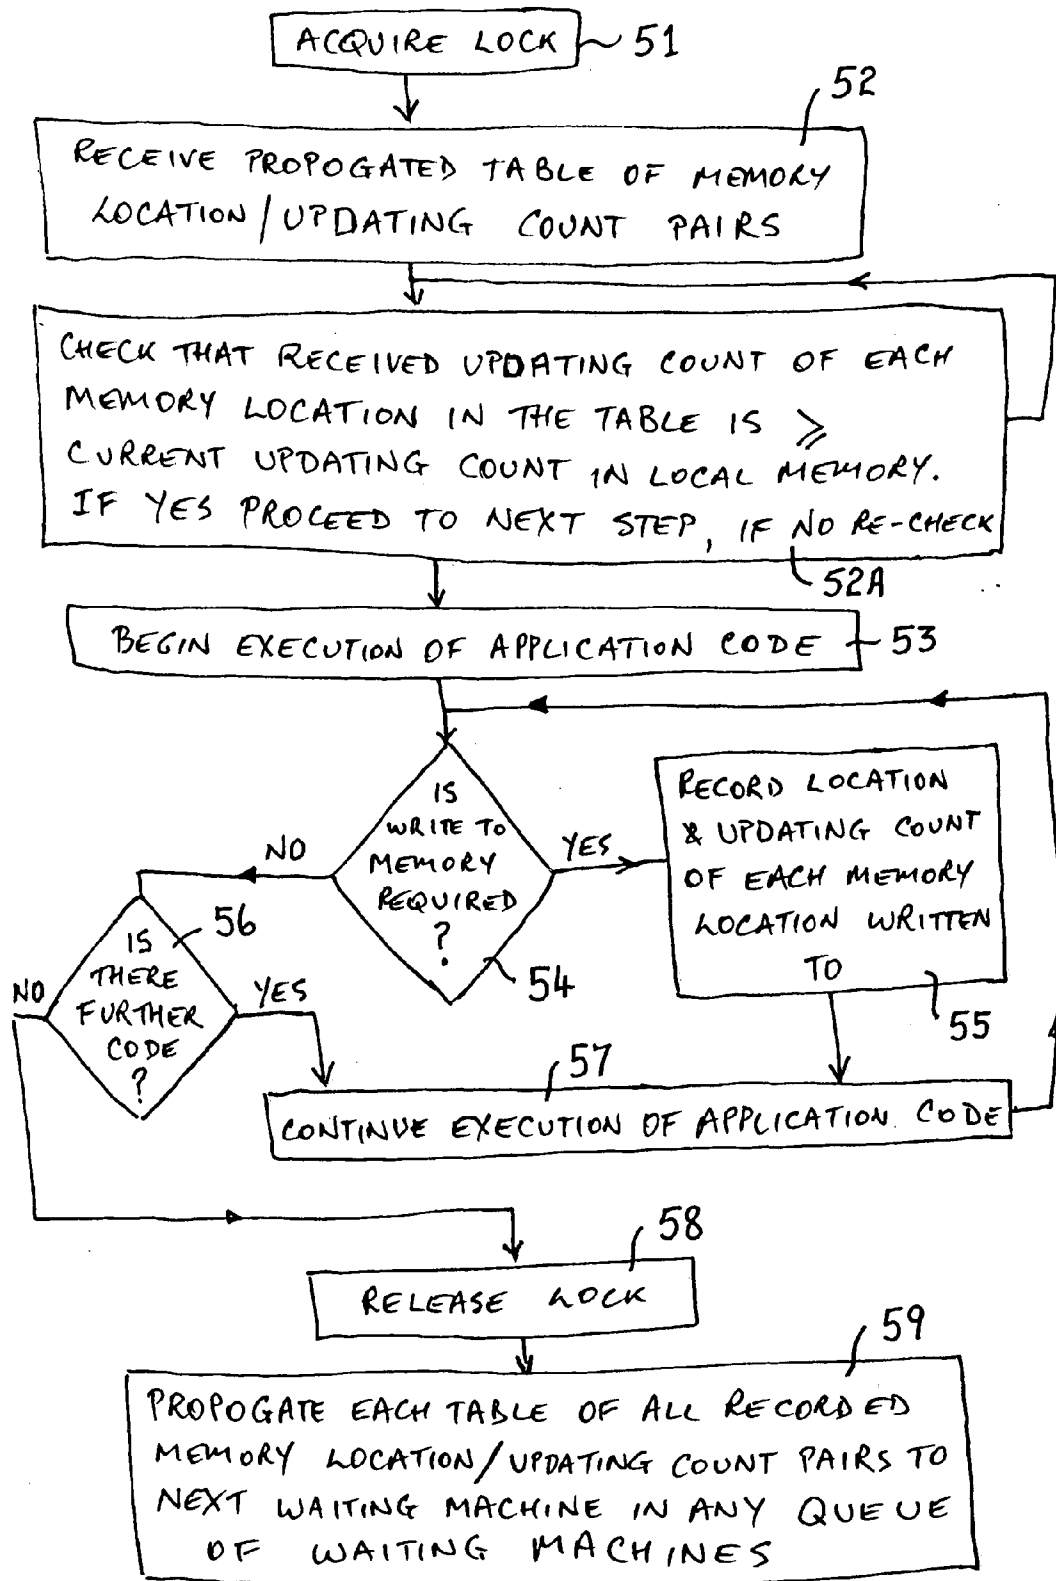 ACQUIRE LOCK
51
52
RECEIVE PROPOGATED TABLE OF MEMORY
LOCATION/UPDATING COUNT PAIRS
CHECK THAT RECEIVED UPDATING COUNT OF EACH
MEMORY LOCATION IN THE TABLE IS ⩾
CURRENT UPDATING COUNT IN LOCAL MEMORY.
IF YES PROCEED TO NEXT STEP, IF NO RE-CHECK
52A
BEGIN EXECUTION OF APPLICATION CODE
53
IS
WRITE TO
MEMORY
REQUIRED
?
54
YES
NO
RECORD LOCATION
& UPDATING COUNT
OF EACH MEMORY
LOCATION WRITTEN
TO
55
56
IS
THERE
FURTHER
CODE
?
NO
YES
57
CONTINUE EXECUTION OF APPLICATION CODE
58
RELEASE LOCK
59
PROPOGATE EACH TABLE OF ALL RECORDED
MEMORY LOCATION/UPDATING COUNT PAIRS TO
NEXT WAITING MACHINE IN ANY QUEUE
OF WAITING MACHINES